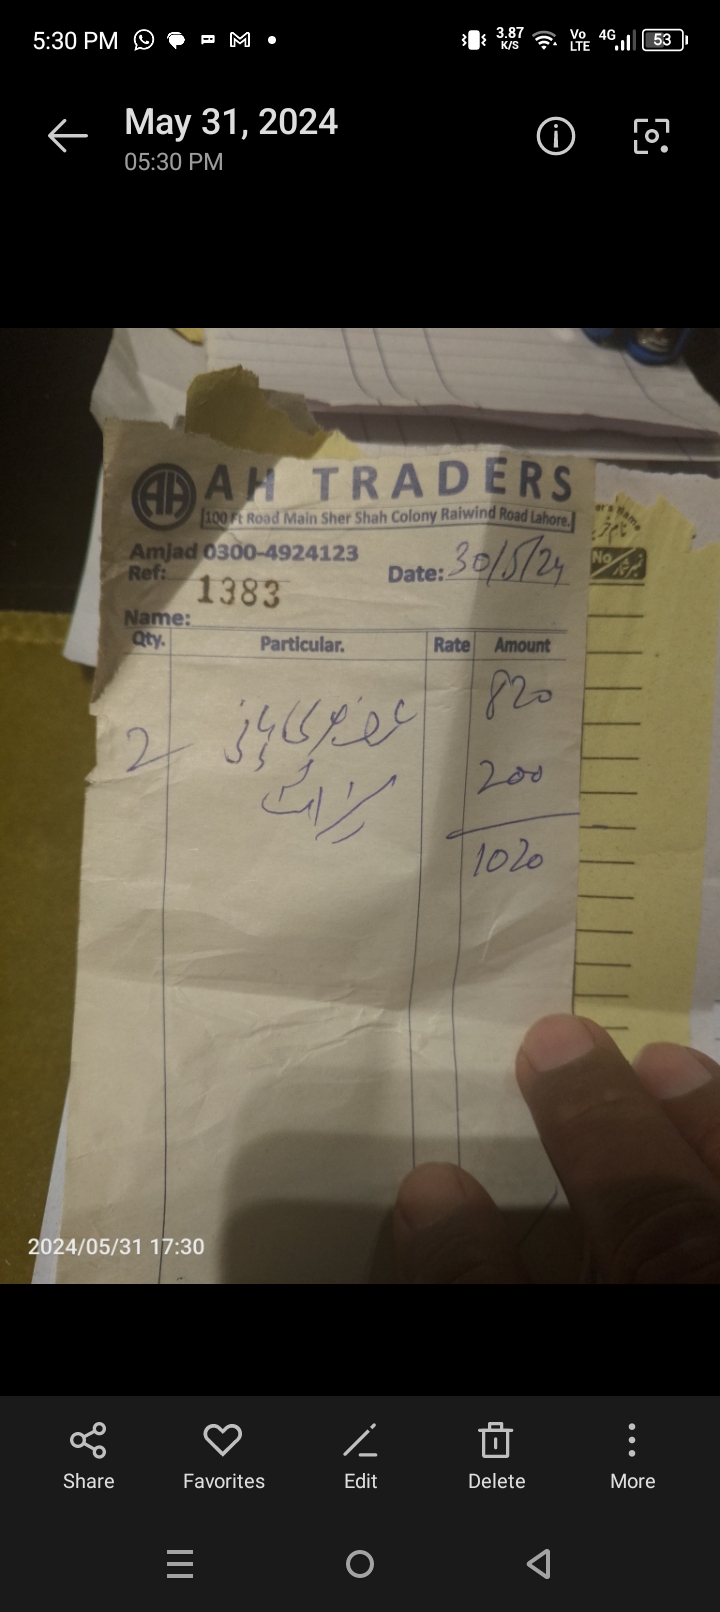 5:30 PM 3.87 K/S Vo LTE 4G 53
May 31, 2024
05:30 PM
AH AH TRADERS
100 Ft Road Main Sher Shah Colony Raiwind Road Lahore.
Amjad 0300-4924123
Ref: 1383 Date: 30/5/24
Name:
Qty. Particular. Rate Amount
820
2
200
1020
er's Name
No نمبر شمار
2024/05/31 17:30
Share Favorites Edit Delete More